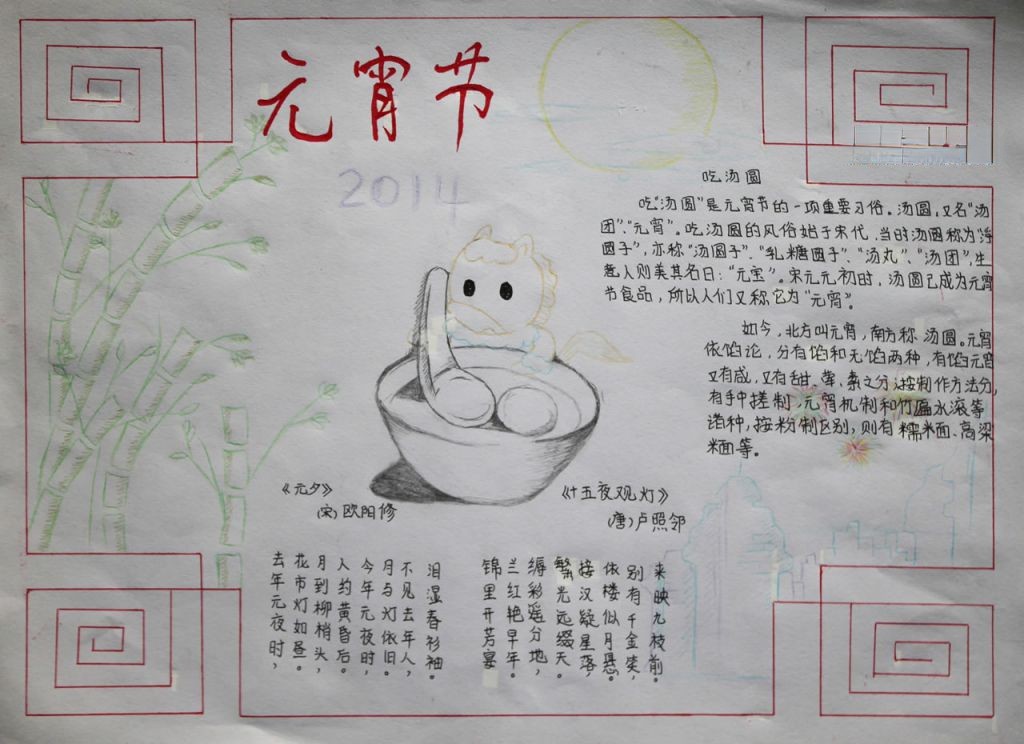 元宵节
2014
吃汤圆
吃“汤圆”是元宵节的一项重要习俗。汤圆，又名“汤
团”“元宵”。吃汤圆的风俗始于宋代，当时汤圆称为“浮
圆子”，亦称“汤圆子”、“乳糖圆子”、“汤丸”、“汤团”，生
意人则美其名曰：“元宝”。宋元元初时，汤圆已成为元宵
节食品，所以人们又称它为“元宵”。
如今，北方叫元宵，南方称汤圆。元宵
依馅论，分有馅和无馅两种，有馅元宵
又有咸，又有甜、荤、素之分；按制作方法分，
有手中搓制，元宵机制和竹匾水滚等
诸种，按粉制区别，则有糯米面、高梁
米面等。
《元夕》
（宋）欧阳修
去年元夜时，
花市灯如昼。
月到柳梢头，
人约黄昏后。
今年元夜时，
月与灯依旧。
不见去年人，
泪湿春衫袖。
《十五夜观灯》
（唐）卢照邻
锦里开芳宴
兰红艳早年。
缛彩遥分地，
繁光远缀天。
接汉疑星落，
依楼似月悬。
别有千金笑，
来映九枝前。